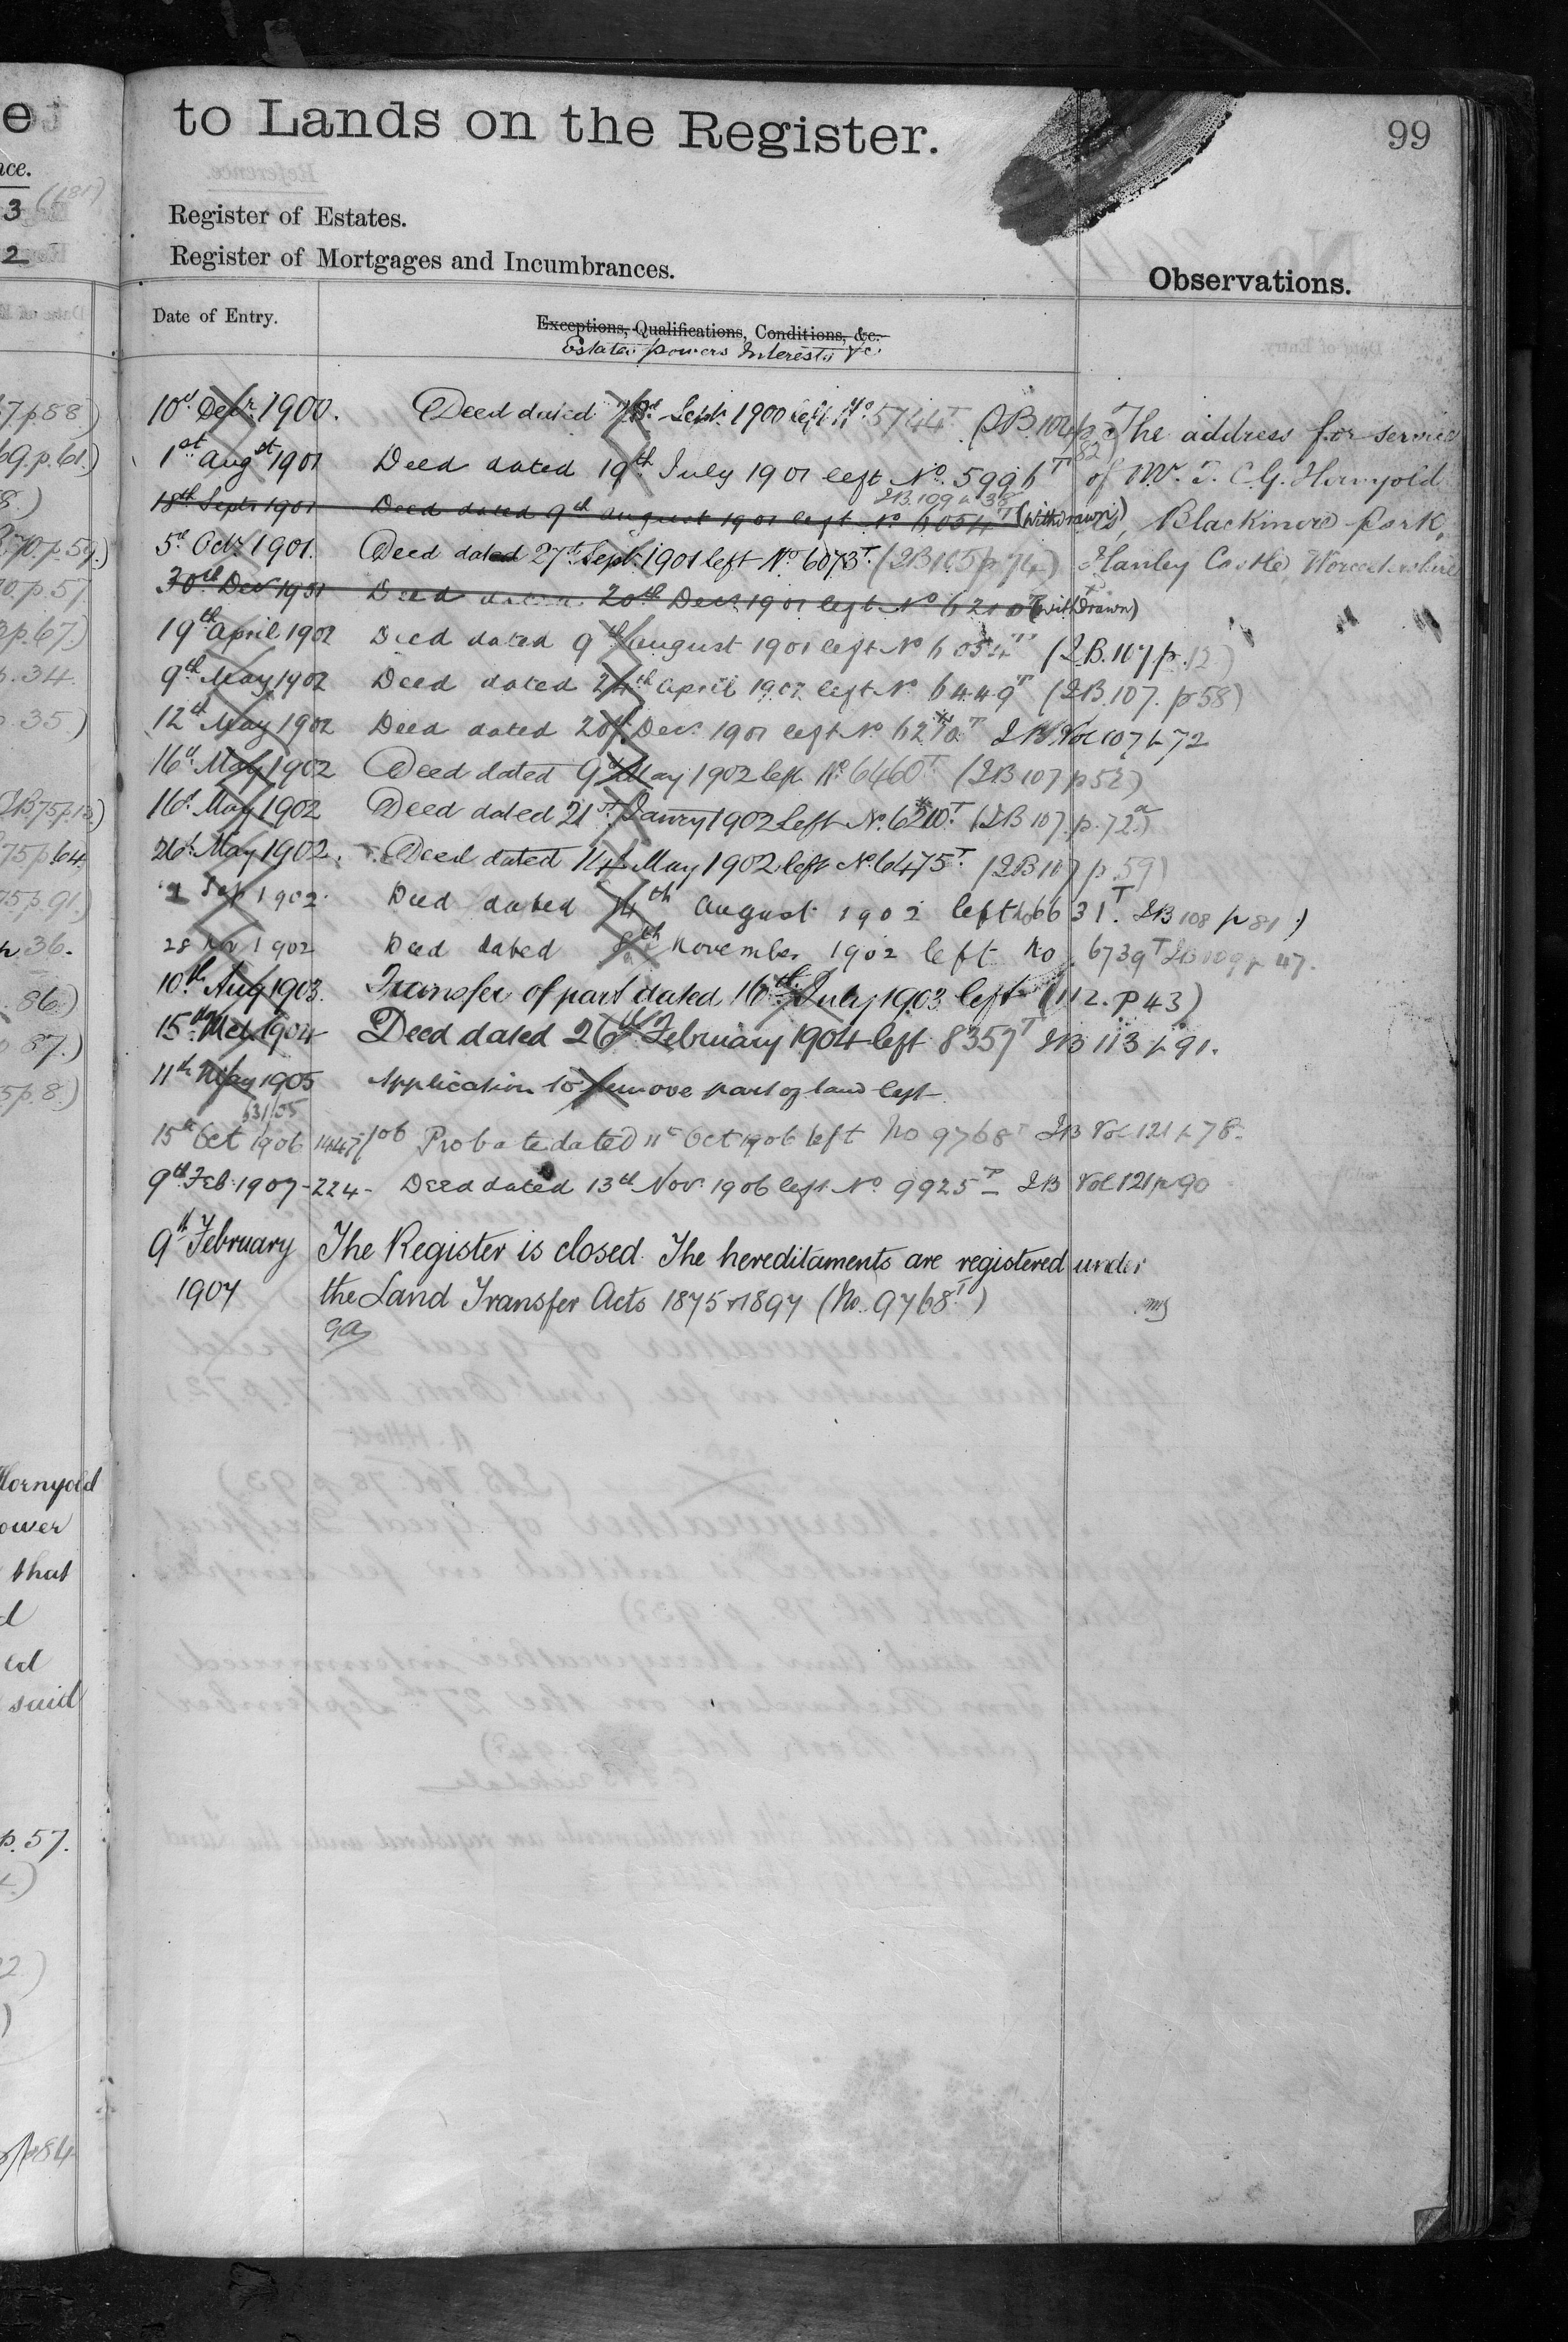 to Lands on the Register.
99
Register of Estates.
Register of Mortgages and Incumbrances.
Observations.
Date of Entry.
Exceptions, Qualifications, Conditions, &c.
Estates powers Interests &c
10th Decr 1900. Deed dated Sept. 1900 left No. 5744T (IB.104 p. 82)
1st Augst 1901 Deed dated 19th July 1901 left No. 5996T
IB 109 p 38
18th Septr 1901 Deed dated 9th August 1901 left No 6054T (Withdrawn)
5th Octr 1901. Deed dated 27th Septr 1901 left No 6073T. (IB 105 p 74)
30th Decr 1901 Deed dated 20th Decr 1901 left No 6210T (withdrawn)
19th April 1902 Deed dated 9th August 1901 left No 6054T (IB.107 p.12)
9th May 1902 Deed dated 24th April 1902 left No 6449T (IB.107. p58)
12th May 1902 Deed dated 20th Decr 1901 left No. 6210T IB. Vol 107 p 72
16th May 1902 Deed dated 9th May 1902 left No. 6460T (IB 107 p 52)
16th May 1902 Deed dated 21st Janry 1902 Left No. 6210T. (IB 107. p. 72a)
26th May 1902. Deed dated 14th May 1902 left No. 6475T. (IB 107 p. 59)
2 Sep 1902. Deed dated 14th August 1902 left No 6631T. IB 108 p 81.)
28 Nov 1902 Deed dated 8th November 1902 left No. 6739T IB 109 p 47.
10th Aug 1903. Transfer of part dated 16th July 1903 left (112. p 43)
15th Mch. 1904 Deed dated 26th February 1904 left 8357T IB 113 p 91.
11th May 1905 Application to remove part of land left
631/05
15th Oct 1906 1447/06 Probate dated 11th Oct 1906 left No 9768T IB Vol 121 p 78.
9th Feb. 1907 - 224 - Deed dated 13th Nov. 1906 left No. 9925T - IB Vol 121 p 90
9th February The Register is closed. The hereditaments are registered under
1907 the Land Transfer Acts 1875 & 1897 (No. 9768T)
The address for service
of Mr. T. C. G. Hornyold
is, Blackmore Park,
Hanley Castle, Worcestershire